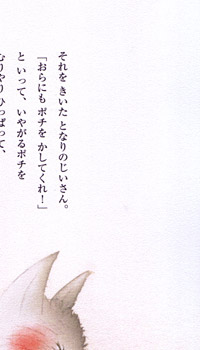 それを きいた となりのじいさん。
「おらにも ポチを かしてくれ！」
と いって、いやがるポチを
むりやり ひっぱって、